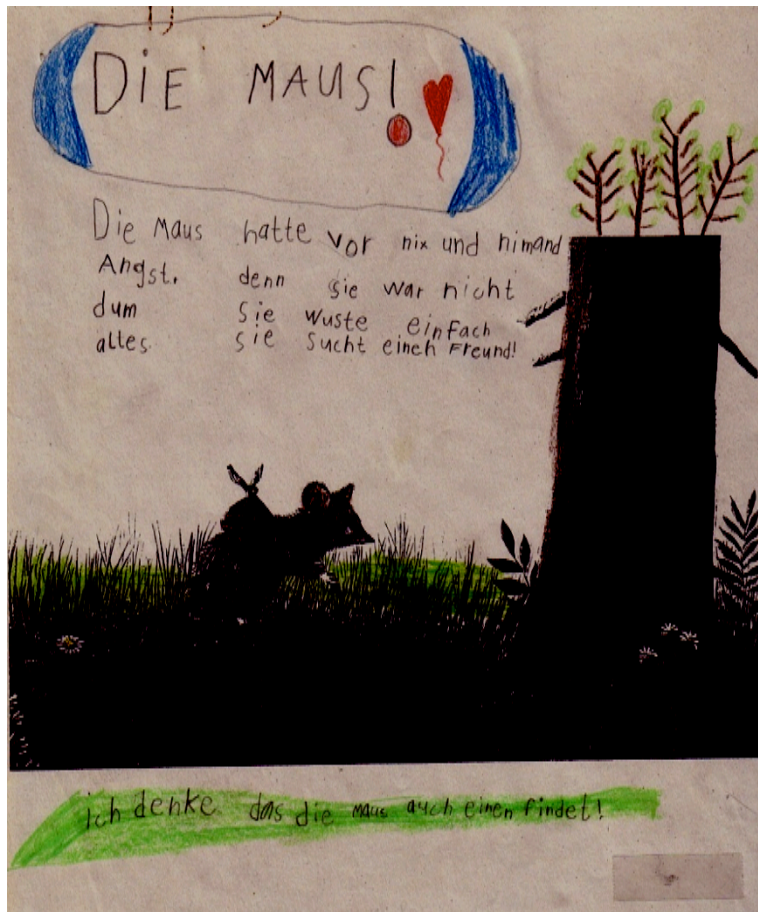 DiE MAUS!
Die Maus hatte vor nix und nimand
Angst, denn sie war nicht
dum sie wuste einfach
alles sie sucht einen Freund!
ich denke das die maus auch einen findet!